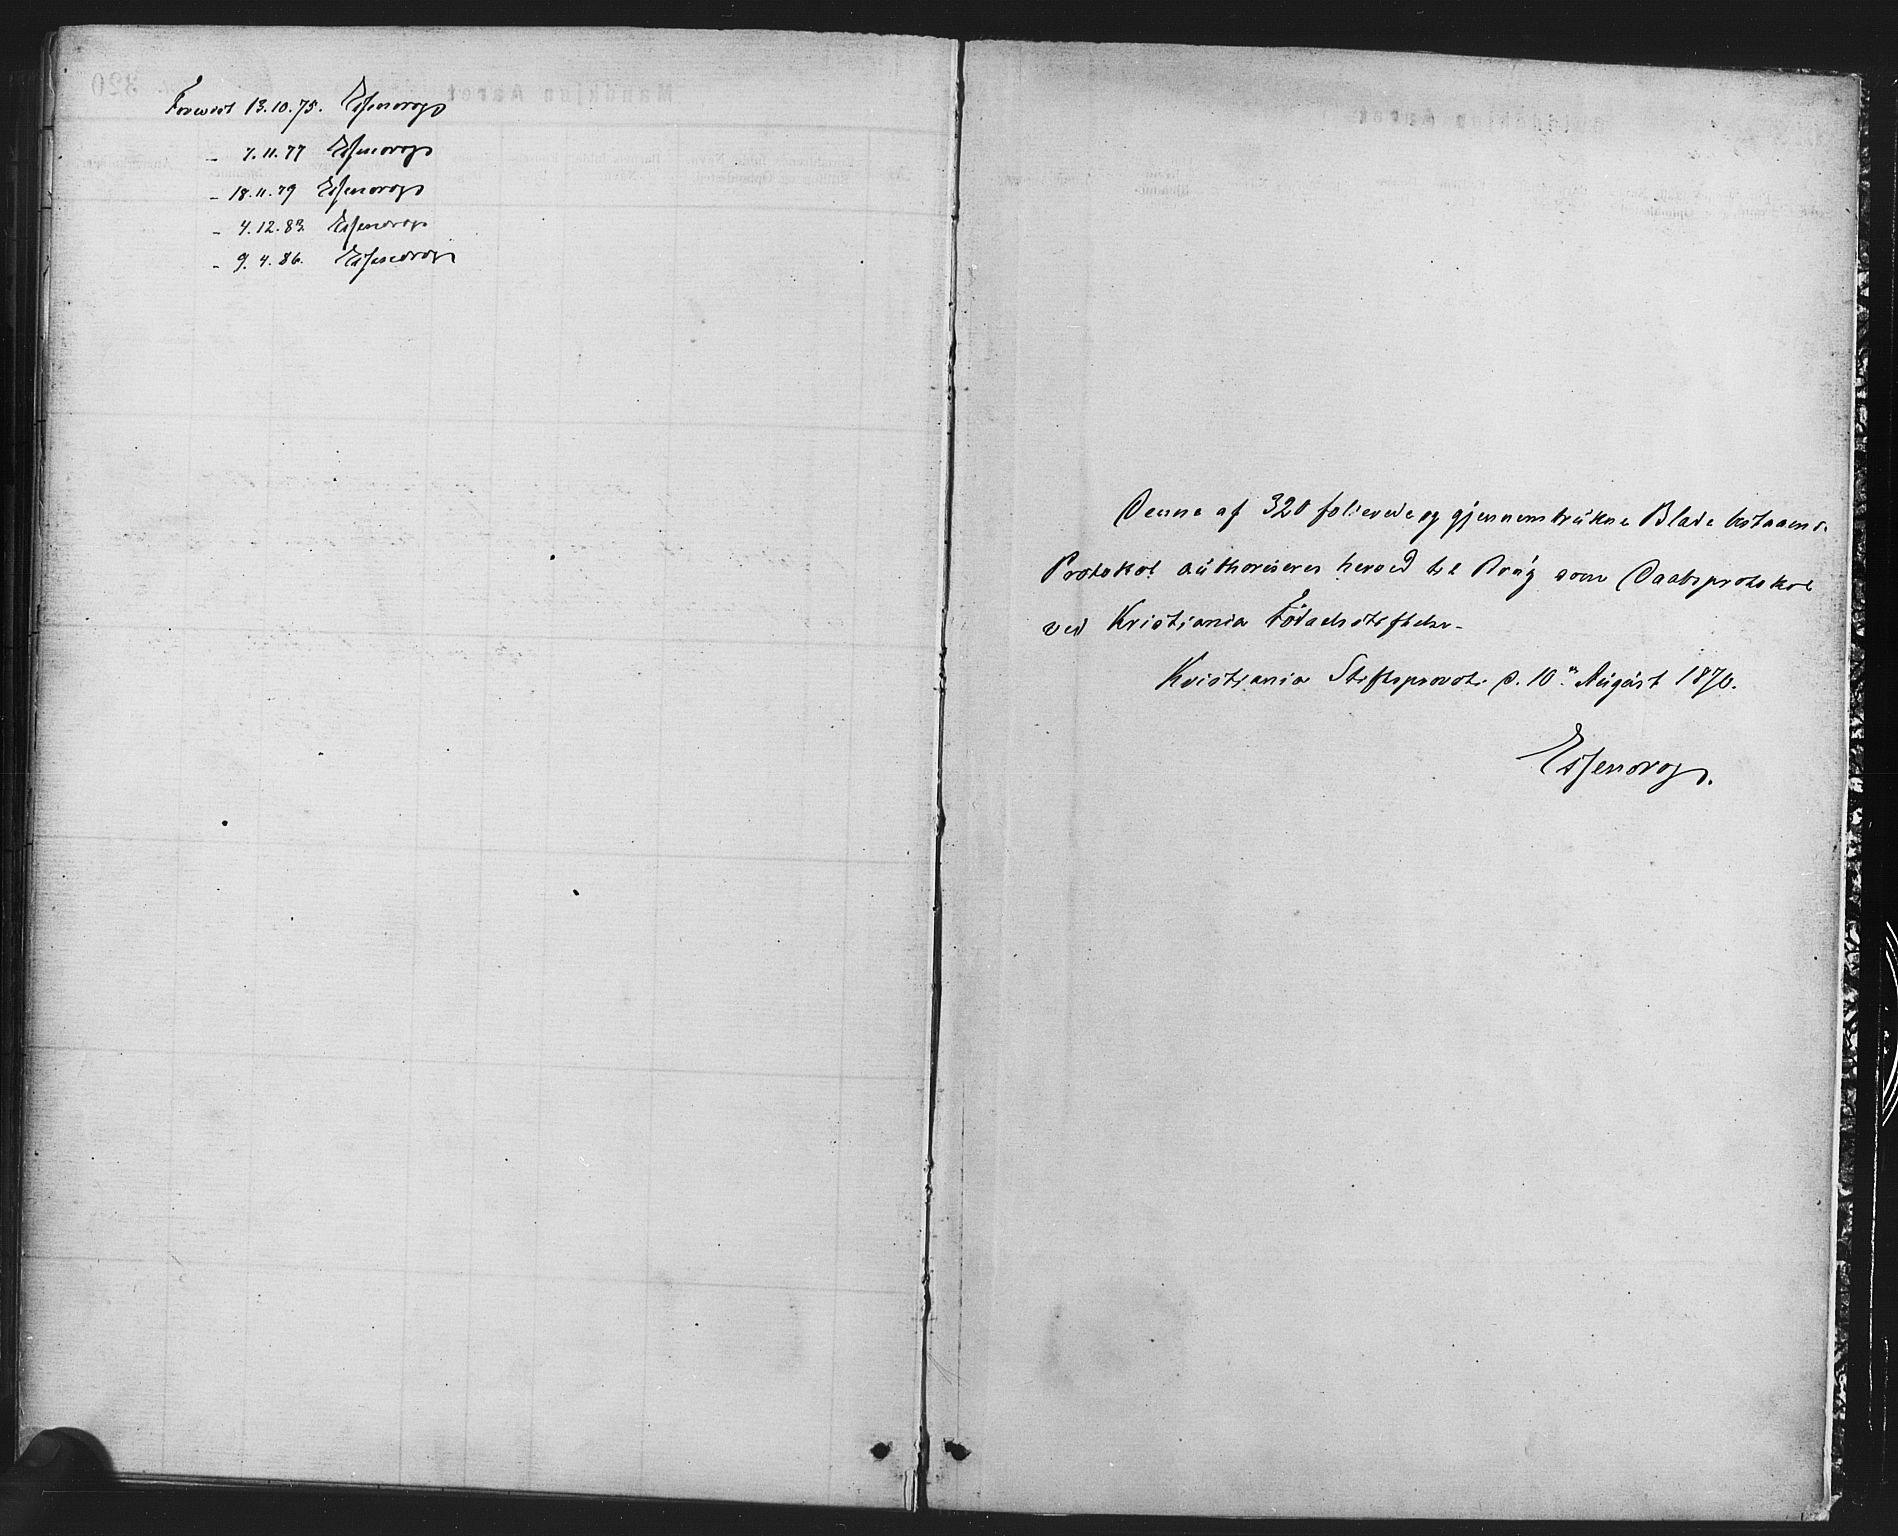 Forevist 13.10.75. Essendrop
- 7.11.77 Essendrop
- 18.11.79 Essendrop
- 4.12.83 Essendrop
- 9.4.86. Essendrop
Denne af 320 folierede og gjennemtrukne Blade bestaaende
Protokol authoriseres herved til Brug som Daabsprotokol
ved Kristiania Fødselsstiftelse.
Kristiania Stiftsprovsti d. 10de August 1870.
Essendrop.
320
Mandkjøn Aaret